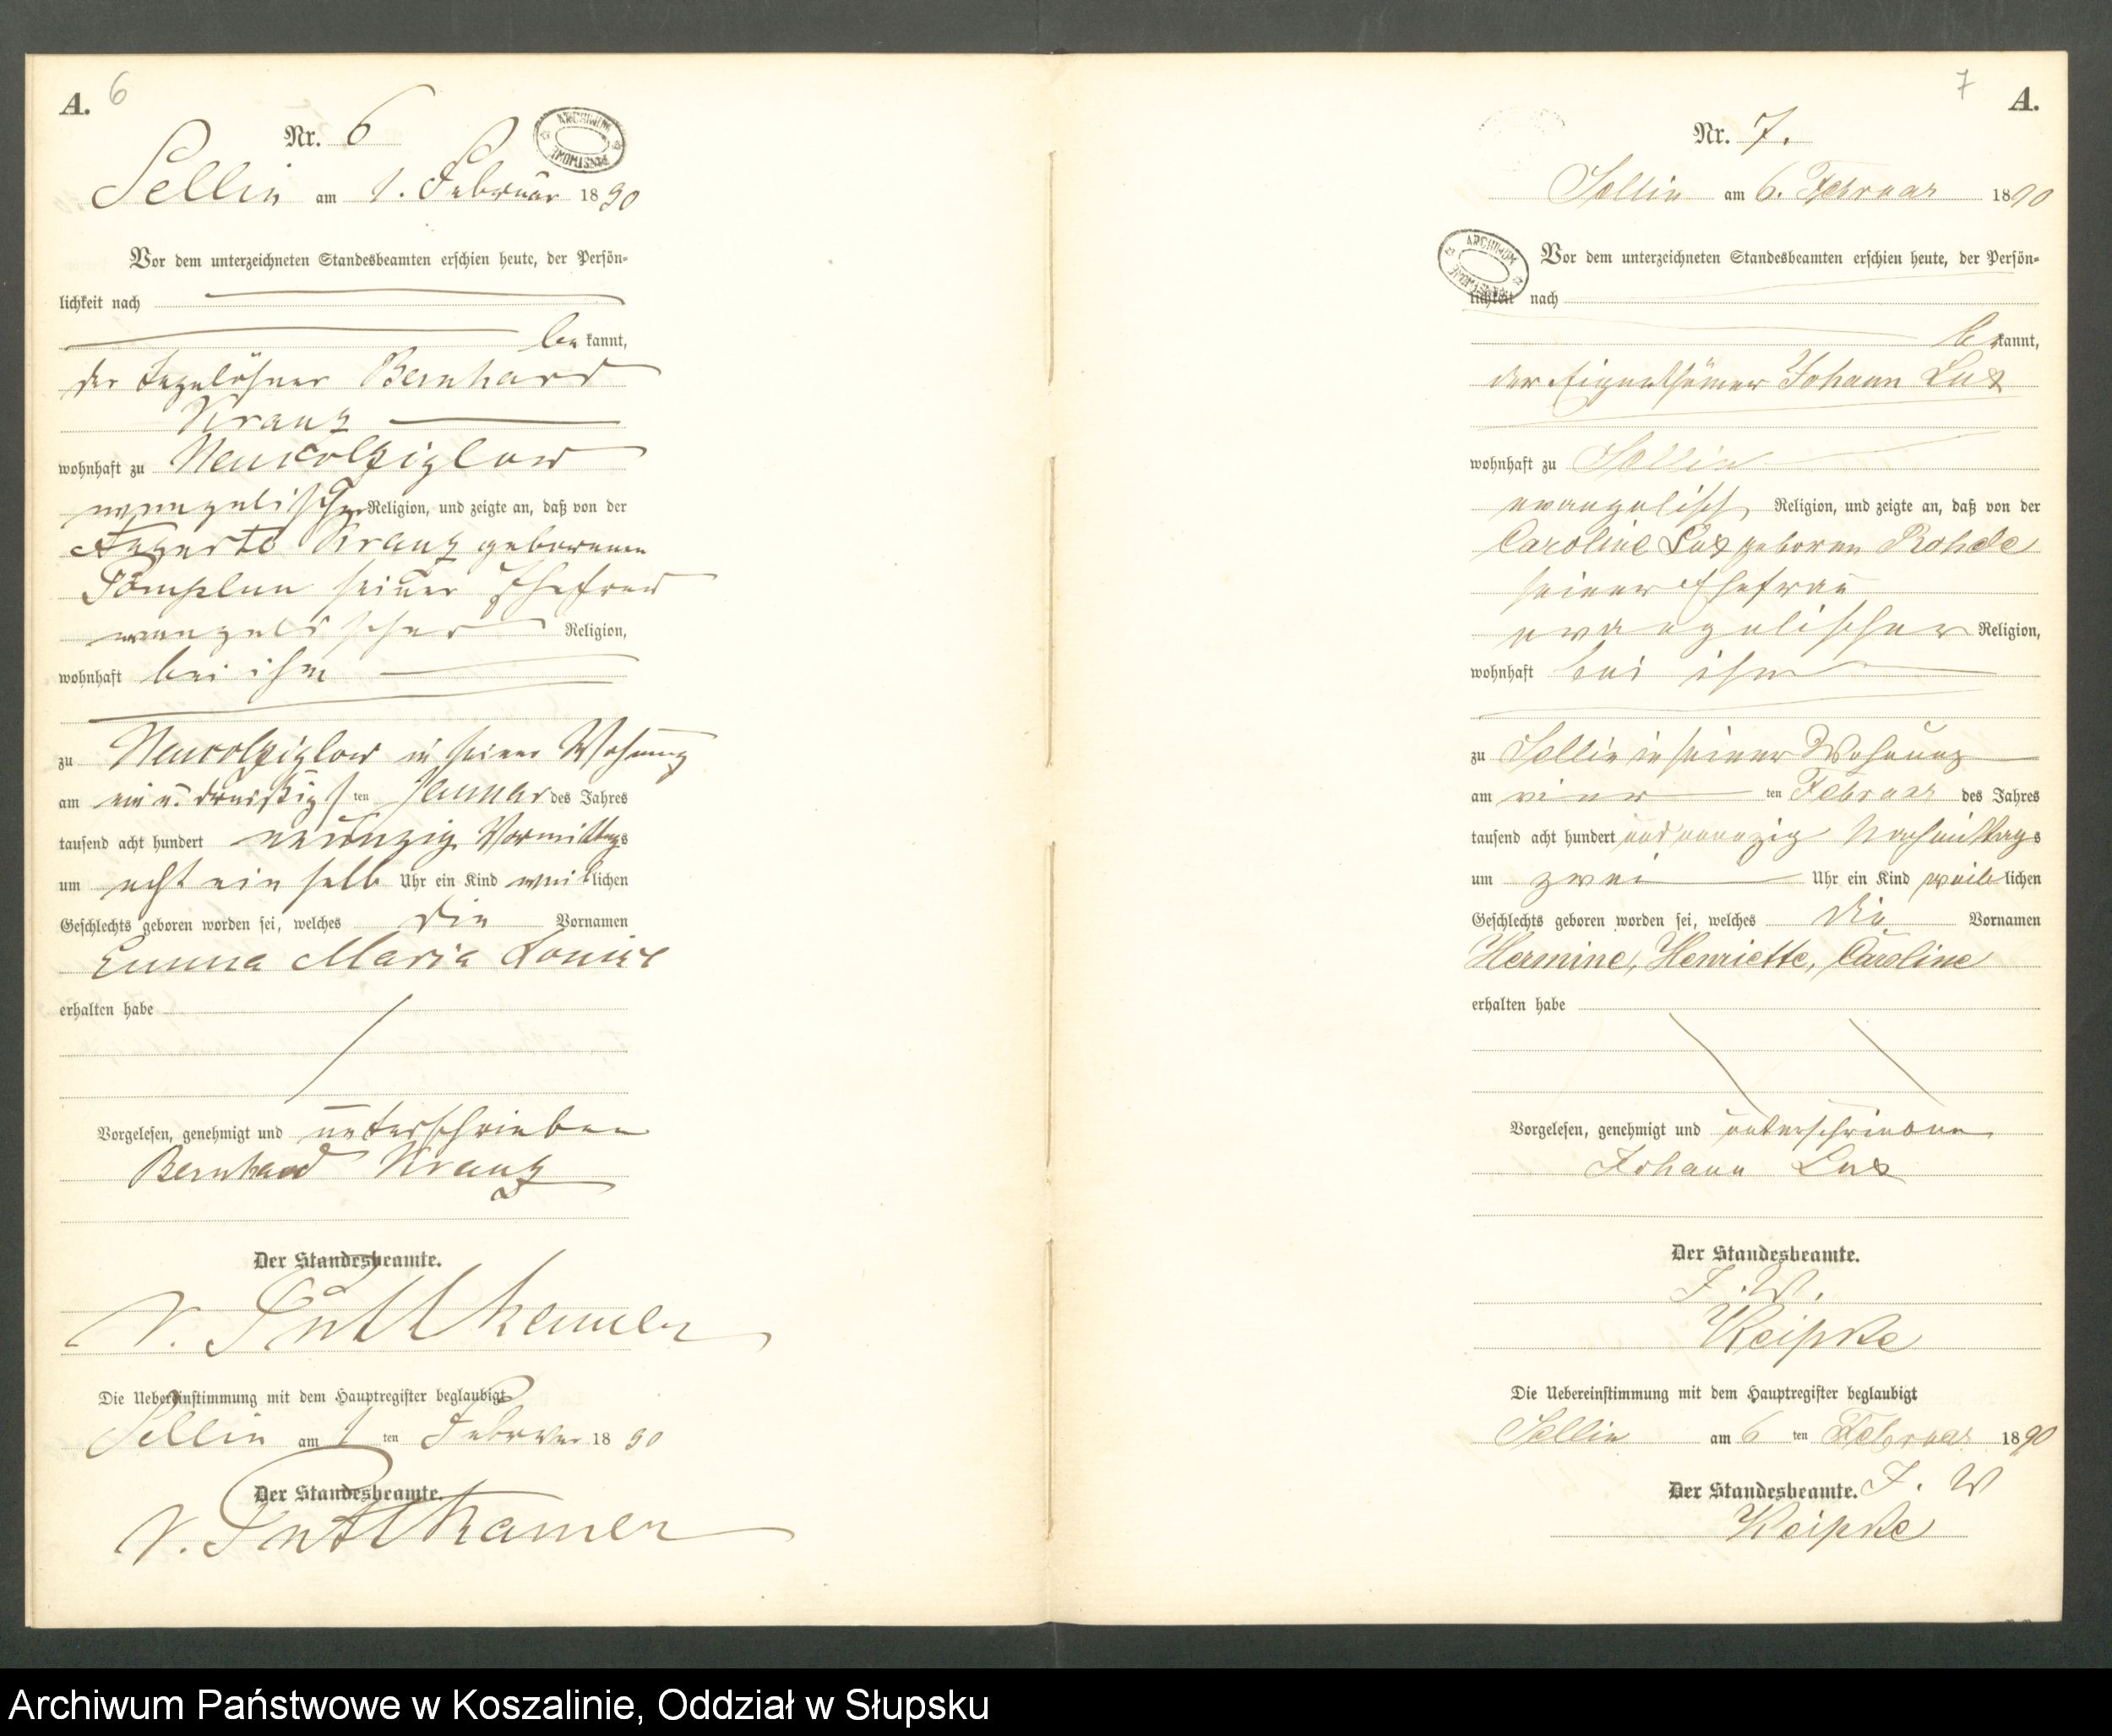 A. 6
Nr. 6
ARCHIWUM PAŃSTWOWE
Sellin am 1. Februar 1890
Vor dem unterzeichneten Standesbeamten erschien heute, der Persön-
lichkeit nach
bekannt,
der Tagelöhner Bernhard
Kranz
wohnhaft zu Neukolziglow
evangelischer Religion, und zeigte an, daß von der
Auguste Kranz geborenen
Pomplun seiner Ehefrau
evangelischer Religion,
wohnhaft bei ihm
zu Neukolziglow in seiner Wohnung
am ein u. dreißigsten Januar des Jahres
tausend acht hundert neunzig Vormittags
um acht ein halb Uhr ein Kind weiblichen
Geschlechts geboren worden sei, welches die Vornamen
Emma Maria Louise
erhalten habe
Vorgelesen, genehmigt und unterschrieben
Bernhard Kranz
Der Standesbeamte.
v. Puttkamer
Die Uebereinstimmung mit dem Hauptregister beglaubigt
Sellin am 1 ten Februar 1890
Der Standesbeamte.
v. Puttkamer
7 A.
Nr. 7.
Sellin am 6. Februar 1890
ARCHIWUM PAŃSTWOWE
Vor dem unterzeichneten Standesbeamten erschien heute, der Persön-
lichkeit nach
bekannt,
der Eigenthümer Johann Lux
wohnhaft zu Sellin
evangelisch Religion, und zeigte an, daß von der
Caroline Lux geboren Rohde
seiner Ehefrau
evangelischer Religion,
wohnhaft bei ihm
zu Sellin in seiner Wohnung
am vier ten Februar des Jahres
tausend acht hundert und neunzig Nachmittags
um zwei Uhr ein Kind weiblichen
Geschlechts geboren worden sei, welches die Vornamen
Hermine, Henriette, Caroline
erhalten habe
Vorgelesen, genehmigt und unterschrieben
Johann Lux
Der Standesbeamte.
I. W.
Der Standesbeamte. I. W
Die Uebereinstimmung mit dem Hauptregister beglaubigt
Sellin am 6 ten Februar 1890
Archiwum Państwowe w Koszalinie, Oddział w Słupsku